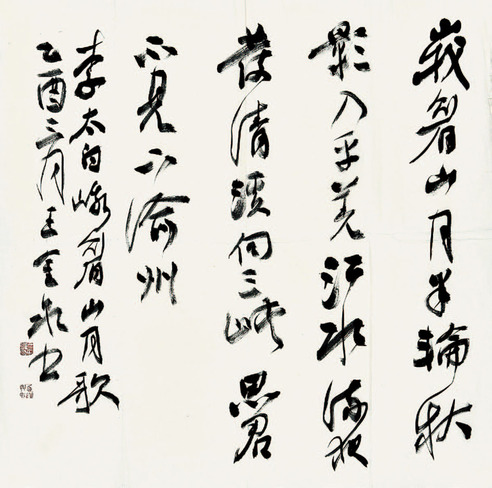 峩眉山月半輪秋
影入平羌江水流夜
發清溪向三峽思君
不見下渝州
李太白峨眉山月歌
乙酉三月王金书